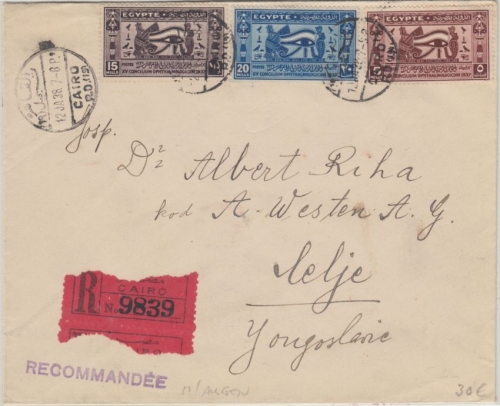 EGYPTE
15
XV CONCILIUM OPHTHALMOLOGICUM 1937
EGYPTE
20
XV CONCILIUM OPHTHALMOLOGICUM 1937
EGYPTE
XV CONCILIUM OPHTHALMOLOGICUM 1937
CAIRO
Josp.
Dr Albert Riha
kod A. Westen A. G.
Celje
Yougoslavie
R CAIRO
No. 9839
RECOMMANDÉE
30€